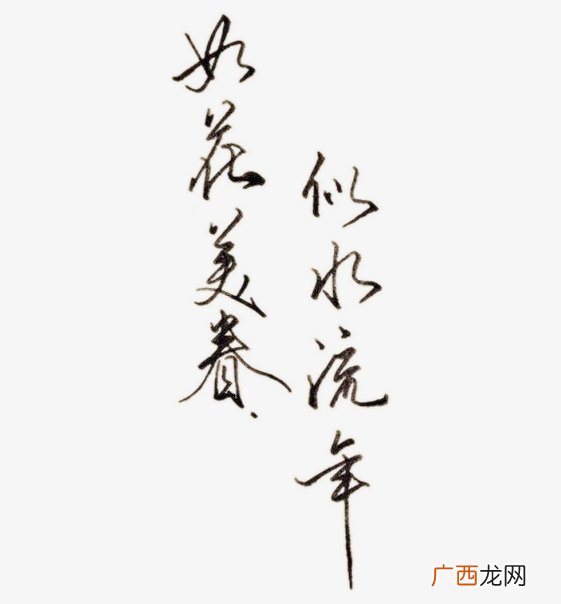 如花美眷.
似水流年
广西龙网